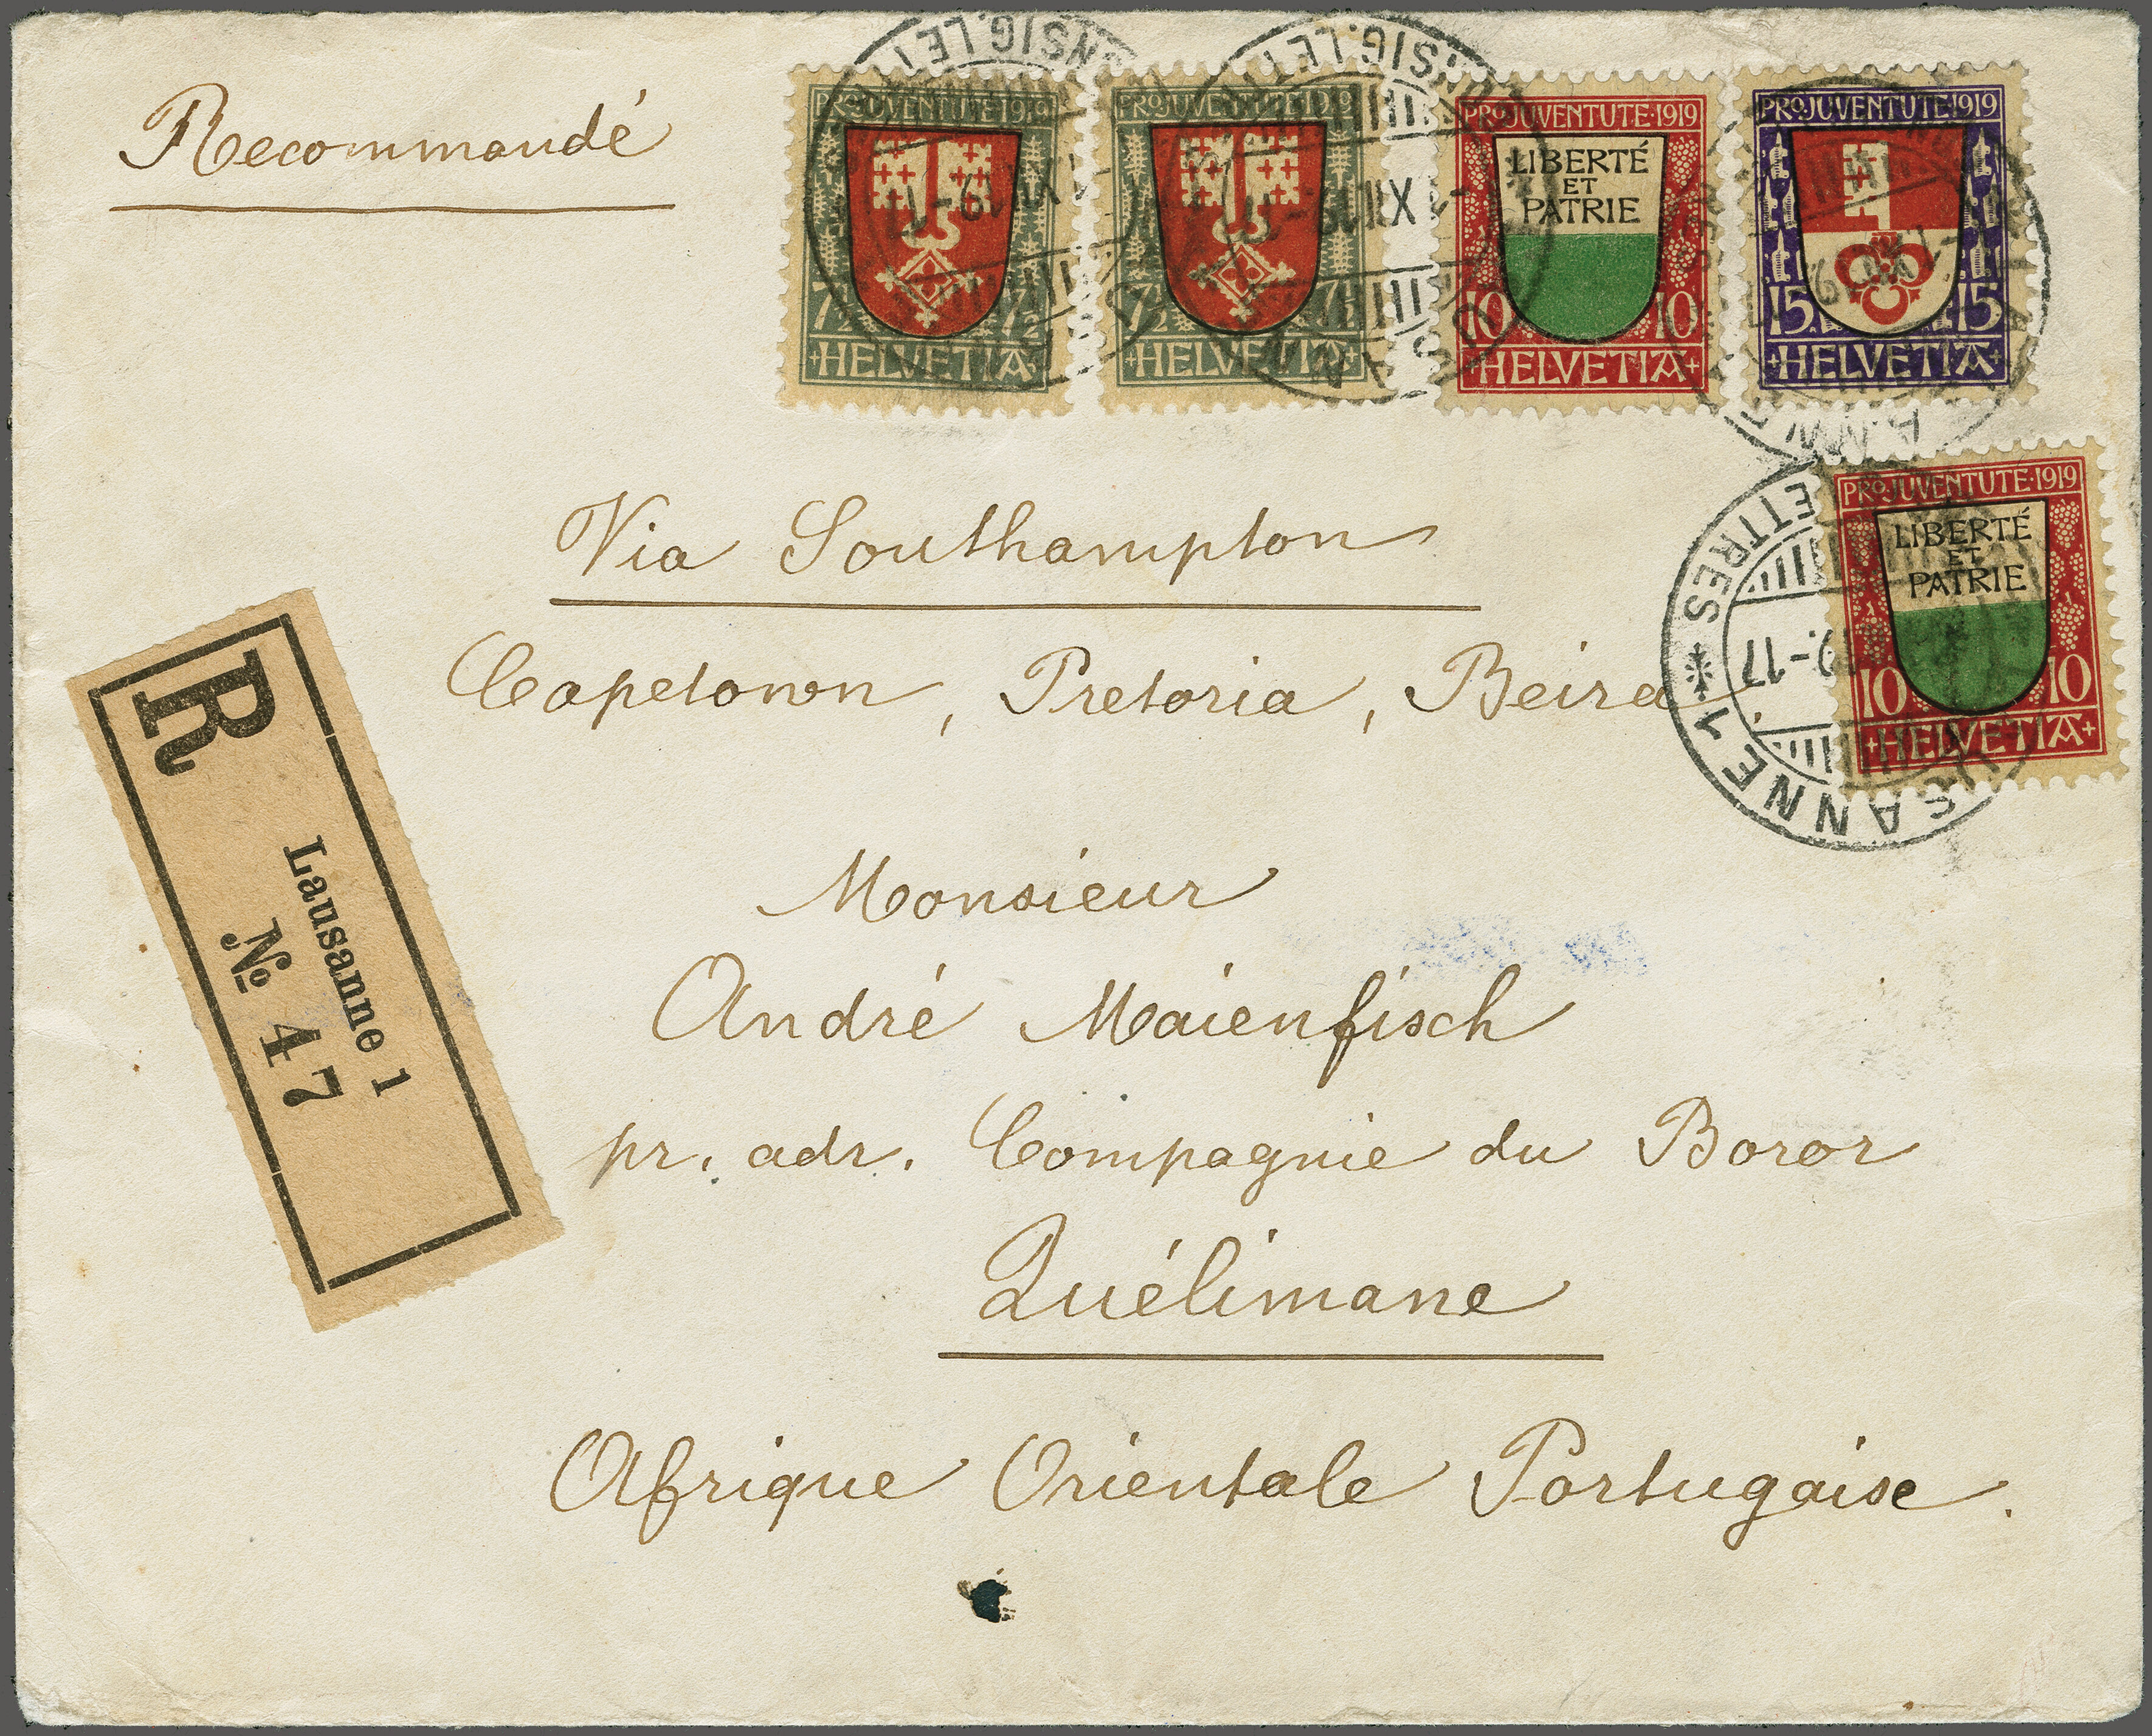 Recommandé
PRO JUVENTUTE·1919
7½ 7½
+HELVETIA+
PRO JUVENTUTE·1919
7½ 7½
+HELVETIA+
PRO JUVENTUTE·1919
LIBERTÉ
ET
PATRIE
10 10
+HELVETIA+
PRO JUVENTUTE·1919
15 15
+HELVETIA+
PRO JUVENTUTE·1919
LIBERTÉ
ET
PATRIE
10 10
+HELVETIA+
Via Southampton
Capetown, Pretoria, Beira
R
Lausanne 1
№ 47
Monsieur
André Maienfisch
pr. adr. Compagnie du Boror
Quélimane
Afrique Orientale Portugaise.